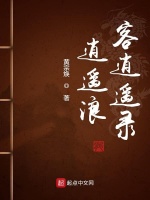 黄宗焕 ◎ 著
逍遥浪
客逍遥录
起点中文网